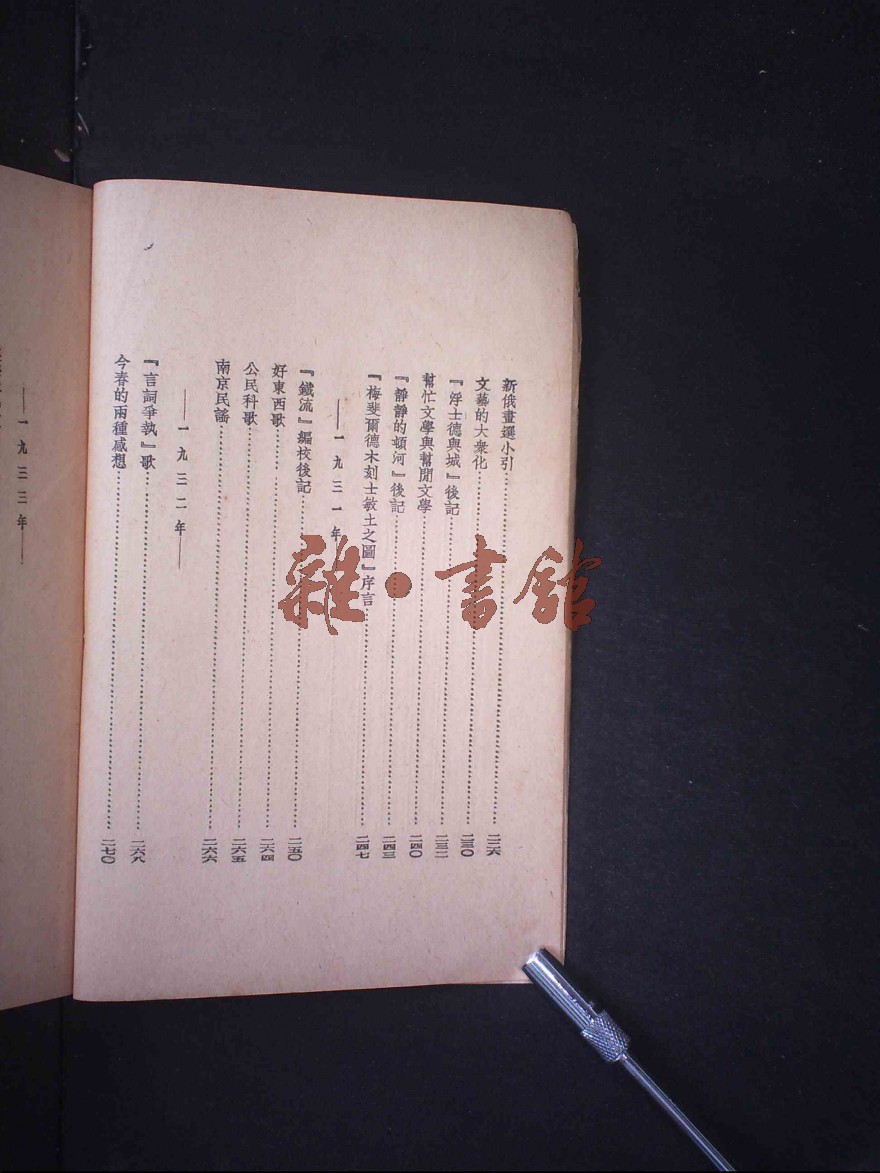 新俄畫選小引……二二六
文藝的大衆化……二三〇
『浮士德與城』後記……二三二
幫忙文學與幫閒文學……二四〇
『靜靜的頓河』後記……二四三
『梅斐爾德木刻士敏土之圖』序言……二四七
——一九三一年
『鐵流』編校後記……二五〇
好東西歌……二六四
公民科歌……二六五
南京民謠……二六六
——一九三二年——
『言詞爭執』歌……二六八
今春的兩種感想……二七〇
——一九三三年——
雜·書館